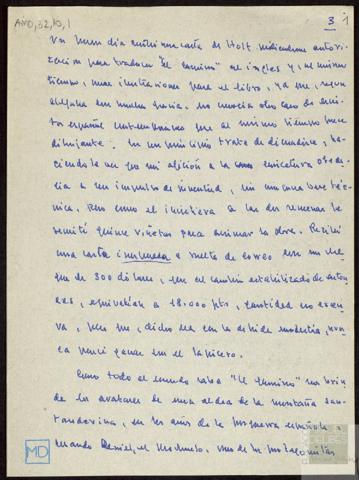 AMD, 32, 10, 1
3 1
Un buen día recibí una carta de Holt pidiéndome autori-
zación para traducir "El camino" al inglés y, al mismo
tiempo, unas ilustraciones para el libro, ya que, según
alegaba con mucha gracia, no conocía otro caso de escri-
tor español contemporáneo que al mismo tiempo fuese
dibujante. En un principio traté de disuadirle, ha-
ciéndole ver que mi afición a la caricatura obede-
cía a un impulso de juventud, sin ninguna base téc-
nica, pero como él insistiera a las dos semanas le
remití quince viñetas para animar la obra. Recibí
una carta a vuelta de correo con un che-
que de 300 dólares, que al cambio estabilizado de enton-
ces, equivalían a 18.000 pts, cantidad no exce-
siva, pero que, dicho sea con la debida modestia, nun-
ca pensé ganar con el lapicero.
Como todo el mundo sabe "El camino" nos brin-
da los avatares de una aldea de la montaña san-
tanderina, en los años de la posguerra española.
Cuando Daniel, el Mochuelo, uno de los protagonistas
MD